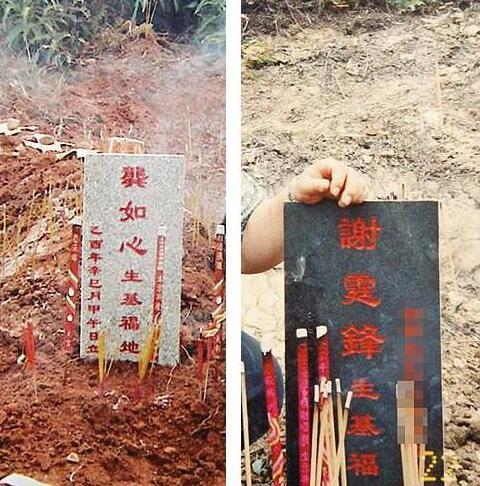 龔如心生基福地
乙酉年辛巳月甲午日立
謝霆鋒生基福